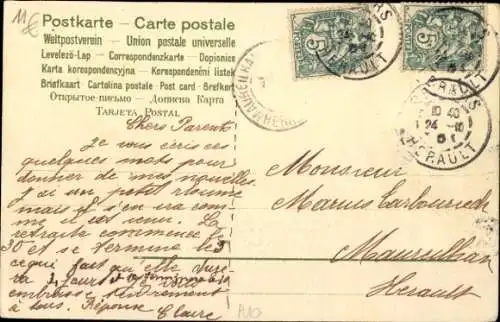 11
Postkarte – Carte postale
Weltpostverein – Union postale universelle
Levelező-Lap – Correspondenzkarte – Dopisnice
Karta korespondencyjna – Korespondenční lístek
Briefkaart Cartolina postale Post card – Brefkort
Открытое письмо – Дописна Карта
TARJETA POSTAL
Chers Parents
Je vous écris ces
quelques mots pour
donner de mes nouvelles
J'ai un petit rhume
mais il s'en va com
me il est venu. La
retraite commence le
30 et se termine le 3
ce qui fait qu'elle dure
ra 3 jours
embrasse
tous. Réponse Claire
Monsieur
Marius Carbourieck
Maureilhan
Herault
5
5
HERAULT
10 40
24
HERAULT